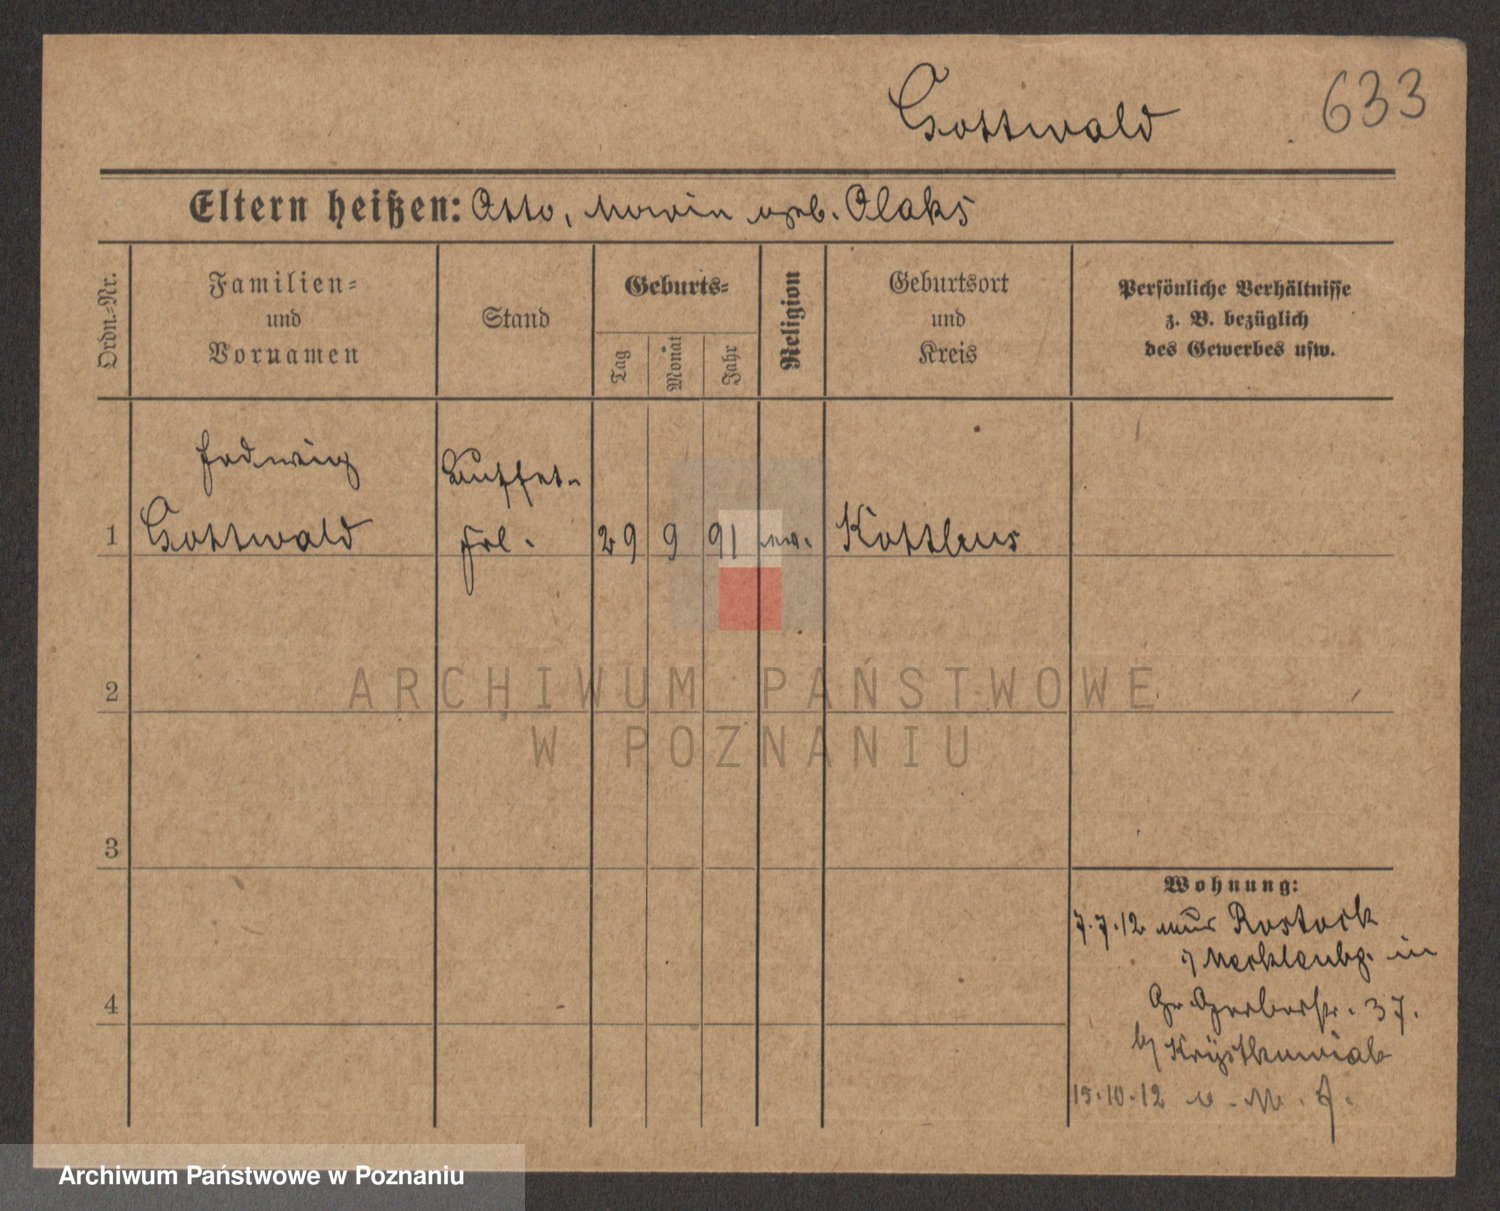 Gottwald
633
Eltern heißen: Otto, Maria geb. Olaks
Ordn.-Nr.
Familien-
und
Vornamen
Stand
Geburts-
Tag
Monat
Jahr
Religion
Geburtsort
und
Kreis
Persönliche Verhältnisse
z. B. bezüglich
des Gewerbes usw.
Hedwig
Buffet-
1 Gottwald frl. 29 9 91 ev. Kottbus
2
3
4
Wohnung:
7.7.12 aus Rostock
i/ Mecklenbg. in
Gr. Gerberstr. 37.
b/
15.10.12
ARCHIWUM PAŃSTWOWE
W POZNANIU
Archiwum Państwowe w Poznaniu